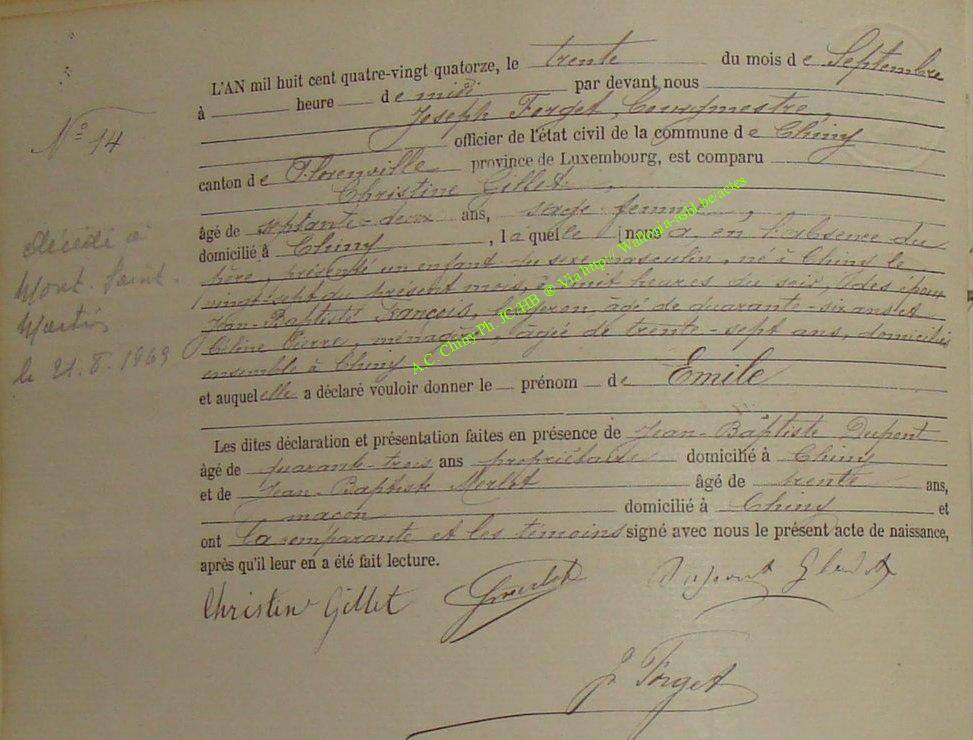 N° 14
L'AN mil huit cent quatre-vingt-quatorze, le trente du mois de Septembre
à heure de midi par devant nous
Joseph Forget, Bourgmestre
officier de l'état civil de la commune de Chiny
canton de Florenville province de Luxembourg, est comparu
Christine Gillet,
âgé de septante-deux ans, sage femme,
domicilié à Chiny, laquelle nous a, en l'absence du
père, présenté un enfant du sexe masculin, né à Chiny le
vingt sept du présent mois, à huit heures du soir, des époux
Jean-Baptiste François, âgé de quarante-six ans et
Céline Pierre, ménagère, âgée de trente-sept ans, domiciliés
ensemble à Chiny
et auquel elle a déclaré vouloir donner le prénom de Emile
Les dites déclaration et présentation faites en présence de Jean-Baptiste Dupont
âgé de quarante-trois ans propriétaire domicilié à Chiny
et de Jean-Baptiste Merlot âgé de trente ans,
maçon domicilié à Chiny et
ont la comparante et les témoins signé avec nous le présent acte de naissance,
après qu'il leur en a été fait lecture.
Christin Gillet
J Merlot
Dupont
J Forget
décédé à
Mont-Saint-
Martin
le 21.8.1969
A.C. Chiny Ph. JC.HB ® Via http:// Wallonia-asbl.be/actes